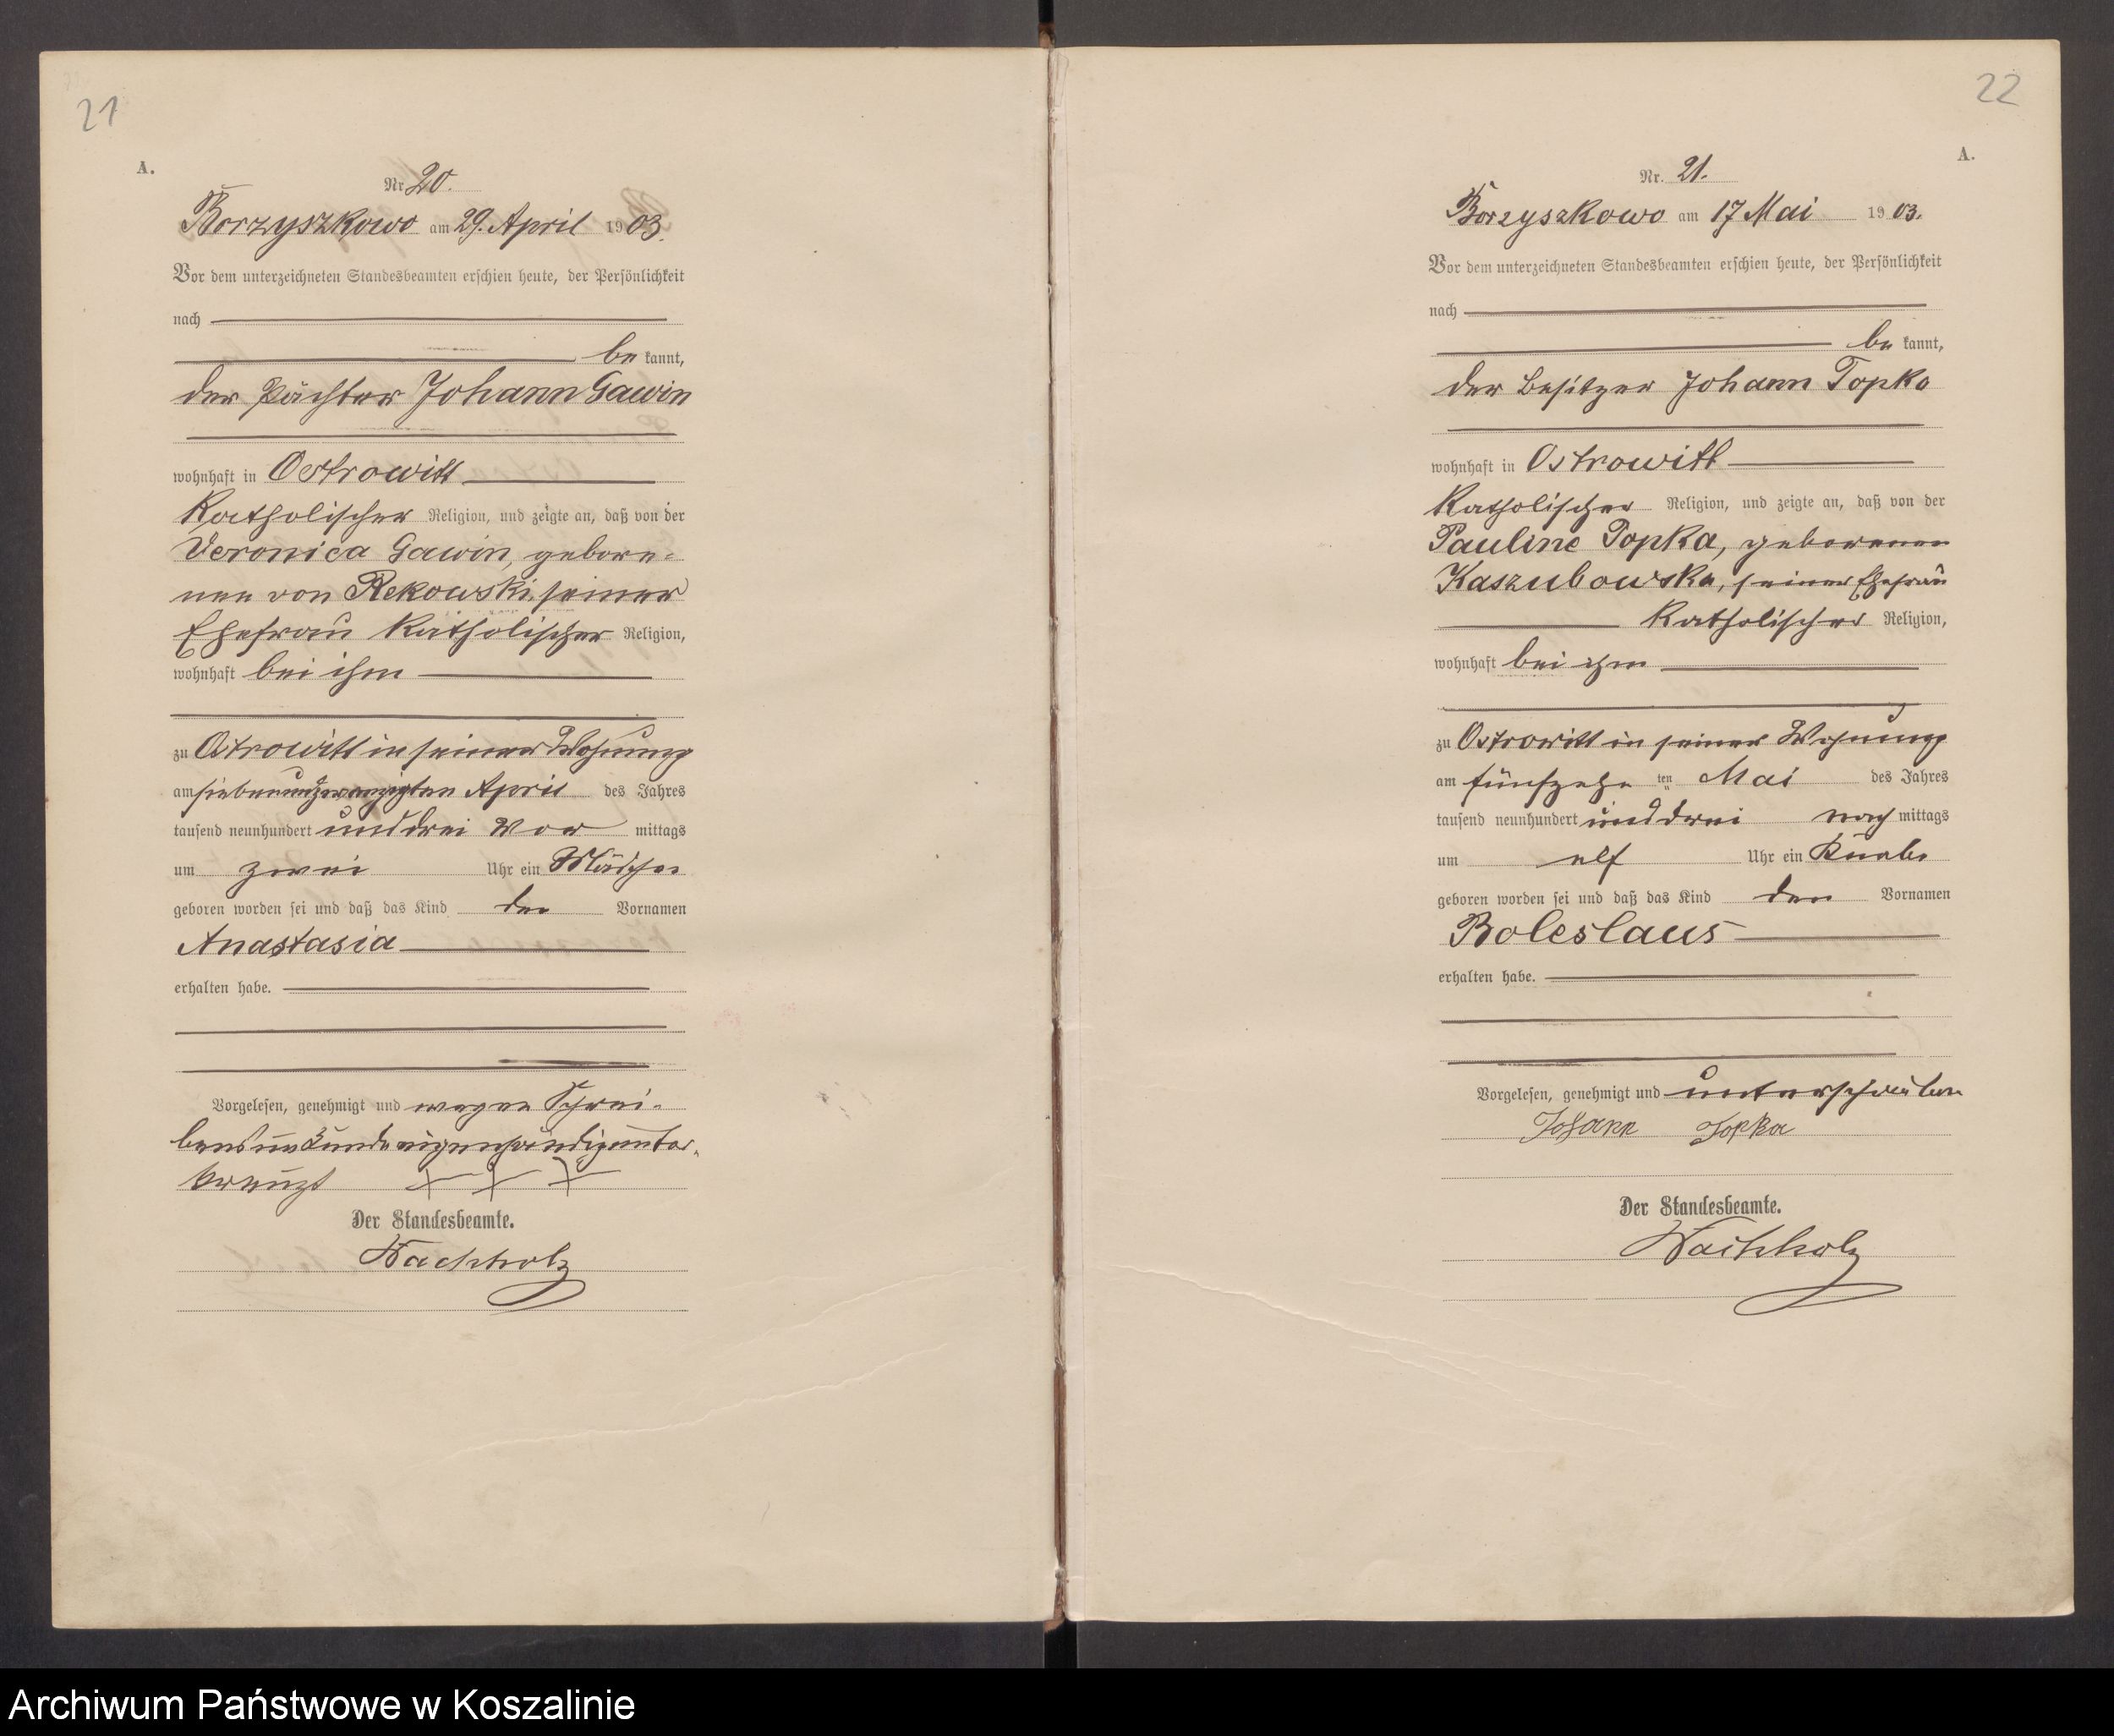 21
A.
Nr. 20.
Borzyszkowo am 29. April 1903.
Vor dem unterzeichneten Standesbeamten erschien heute, der Persönlichkeit
nach
be kannt,
der Pächter Johann Gawin
wohnhaft in Ostrowitt
Katholischer Religion, und zeigte an, daß von der
Veronica Gawin, gebore-
nen von Rekowski, seiner
Ehefrau Katholischer Religion,
wohnhaft bei ihm
zu Ostrowitt in seiner Wohnung
am siebenundzwanzigten April des Jahres
tausend neunhundert und drei Vor mittags
um zwei Uhr ein Mädchen
geboren worden sei und daß das Kind den Vornamen
Anastasia
erhalten habe.
Vorgelesen, genehmigt und wegen Schrei-
bensunkunde eigenhändig unter-
kreuzt + + +
Der Standesbeamte.
Wachholz
22
A.
Nr. 21.
Borzyszkowo am 17 Mai 1903.
Vor dem unterzeichneten Standesbeamten erschien heute, der Persönlichkeit
nach
be kannt,
der Besitzer Johann Topka
wohnhaft in Ostrowitt
Katholischer Religion, und zeigte an, daß von der
Pauline Topka, geborenen
Kaszubowska, seiner Ehefrau
Katholischer Religion,
wohnhaft bei ihm
zu Ostrowitt in seiner Wohnung
am fünfzehn ten Mai des Jahres
tausend neunhundert und drei nach mittags
um elf Uhr ein Knabe
geboren worden sei und daß das Kind den Vornamen
Boleslaus
erhalten habe.
Vorgelesen, genehmigt und unterschrieben
Johann Topka
Der Standesbeamte.
Wachholz
Archiwum Państwowe w Koszalinie